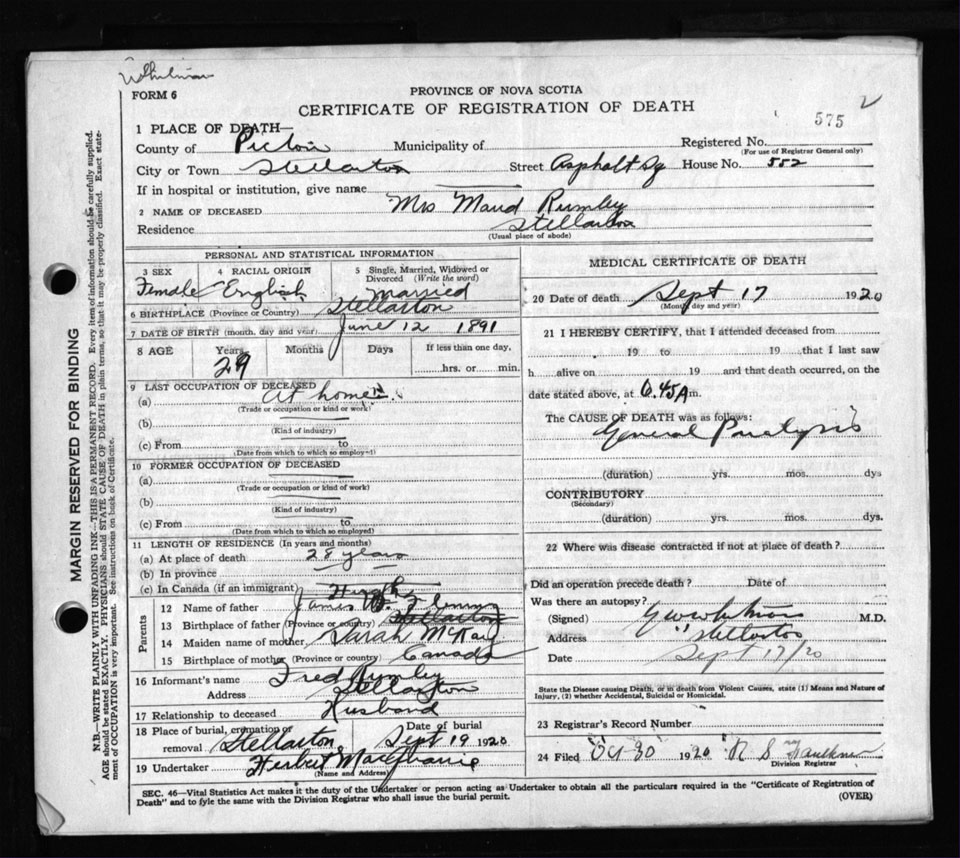 Whitman
FORM 6
PROVINCE OF NOVA SCOTIA
CERTIFICATE OF REGISTRATION OF DEATH
575
2
1 PLACE OF DEATH—
County of Pictou Municipality of Registered No.
(For use of Registrar General only)
City or Town Stellarton Street Asphalt Sq House No. 552
If in hospital or institution, give name
2 NAME OF DECEASED Mrs Maud Rumley
Residence Stellarton
(Usual place of abode)
PERSONAL AND STATISTICAL INFORMATION
3 SEX Female
4 RACIAL ORIGIN English
5 Single, Married, Widowed or Divorced (Write the word) Married
6 BIRTHPLACE (Province or Country) Stellarton
7 DATE OF BIRTH (month, day and year) June 12 1891
8 AGE Years 29 Months Days If less than one day, hrs. or min.
9 LAST OCCUPATION OF DECEASED
(a) At home
(Trade or occupation or kind of work)
(b)
(Kind of industry)
(c) From to
(Date from which to which so employed)
10 FORMER OCCUPATION OF DECEASED
(a)
(Trade or occupation or kind of work)
(b)
(Kind of industry)
(c) From to
(Date from which to which so employed)
11 LENGTH OF RESIDENCE (In years and months)
(a) At place of death 28 years
(b) In province
(c) In Canada (if an immigrant)
Parents
12 Name of father James W. Fleming
13 Birthplace of father (Province or country) Stellarton
14 Maiden name of mother Sarah McKay
15 Birthplace of mother (Province or country) Canada
16 Informant's name Fred Rumley
Address Stellarton
17 Relationship to deceased Husband
18 Place of burial, cremation or removal Stellarton Date of burial Sept 19 1920
19 Undertaker Herbert
(Name and Address)
MEDICAL CERTIFICATE OF DEATH
20 Date of death Sept 17 1920
(Month, day and year)
21 I HEREBY CERTIFY, that I attended deceased from
19 to 19 that I last saw
h alive on 19 and that death occurred, on the
date stated above, at 6.45 A m.
The CAUSE OF DEATH was as follows:
General Paralysis
(duration) yrs. mos. dys
CONTRIBUTORY
(Secondary)
(duration) yrs. mos. dys.
22 Where was disease contracted if not at place of death?
Did an operation precede death? Date of
Was there an autopsy?
(Signed) M.D.
Address Stellarton
Date Sept 17/20
State the Disease causing Death, or in death from Violent Causes, state (1) Means and Nature of
Injury, (2) whether Accidental, Suicidal or Homicidal.
23 Registrar's Record Number
24 Filed Oct 30 1920 R S Faulkner
Division Registrar
SEC. 46—Vital Statistics Act makes it the duty of the Undertaker or person acting as Undertaker to obtain all the particulars required in the "Certificate of Registration of
Death" and to fyle the same with the Division Registrar who shall issue the burial permit.
(OVER)
MARGIN RESERVED FOR BINDING
N.B.—WRITE PLAINLY WITH UNFADING INK—THIS IS A PERMANENT RECORD. Every item of information should be carefully supplied.
AGE should be stated EXACTLY. PHYSICIANS should STATE CAUSE OF DEATH in plain terms, so that it may be properly classified. Exact state-
ment of OCCUPATION is very important. See instructions on back of Certificate.